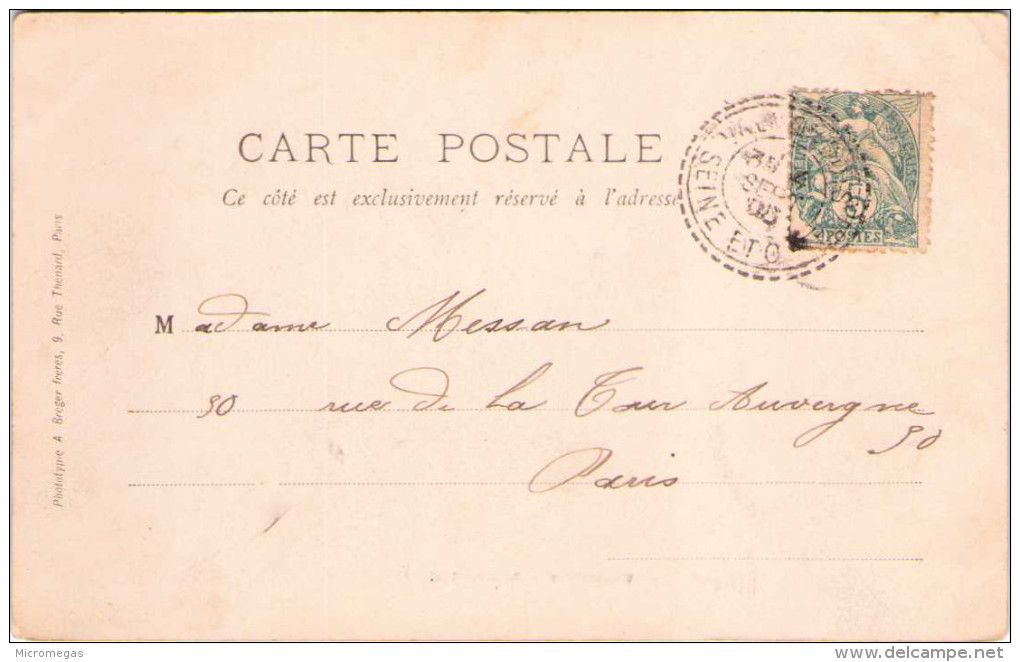 CARTE POSTALE
Ce côté est exclusivement réservé à l'adresse
SEINE ET O
SEPT
POSTES
Madame Messan
50 rue de la Tour Auvergne
50
Paris
Phototypie A Breger freres, 9, Rue Thenard, Paris
Micromegas
delcampe.net